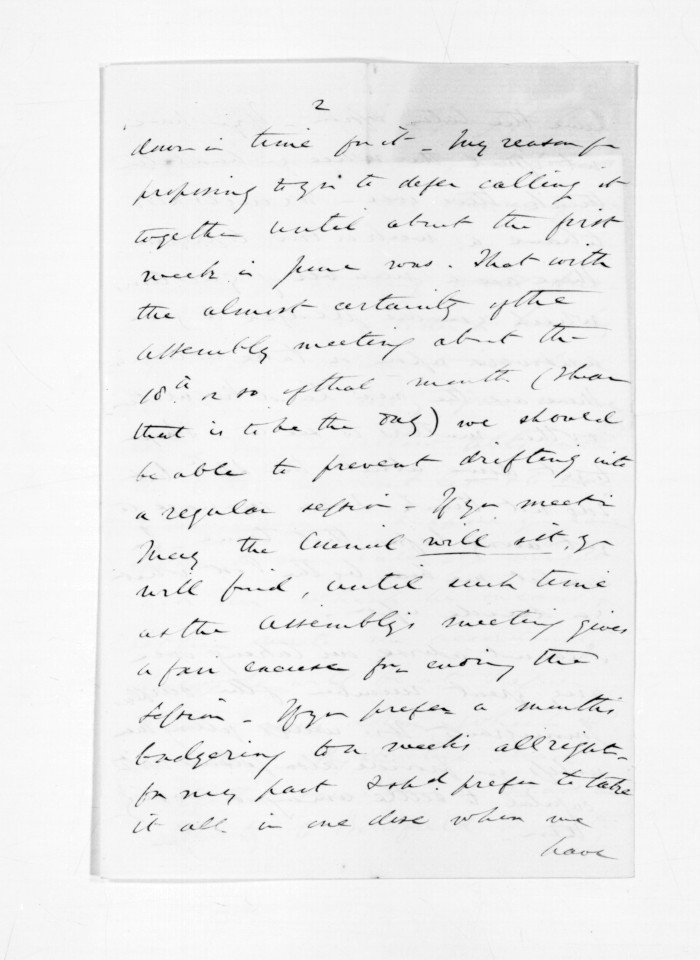 2
down in time for it - My reason for
proposing to you to defer calling it
together until about the first
week in June was. That with
the almost certainty of the
Assembly meeting about the
18th or so of that month (I hear
that is to be the day) we should
be able to prevent drifting into
a regular session - If you meet in
May the Council will sit, you
will find, until such time
as the Assembly's meeting gives
a fair excuse for ending the
Session - If you prefer a months
badgering to a weeks allright -
for my part I shd. prefer to take
it all in one dose when we
have